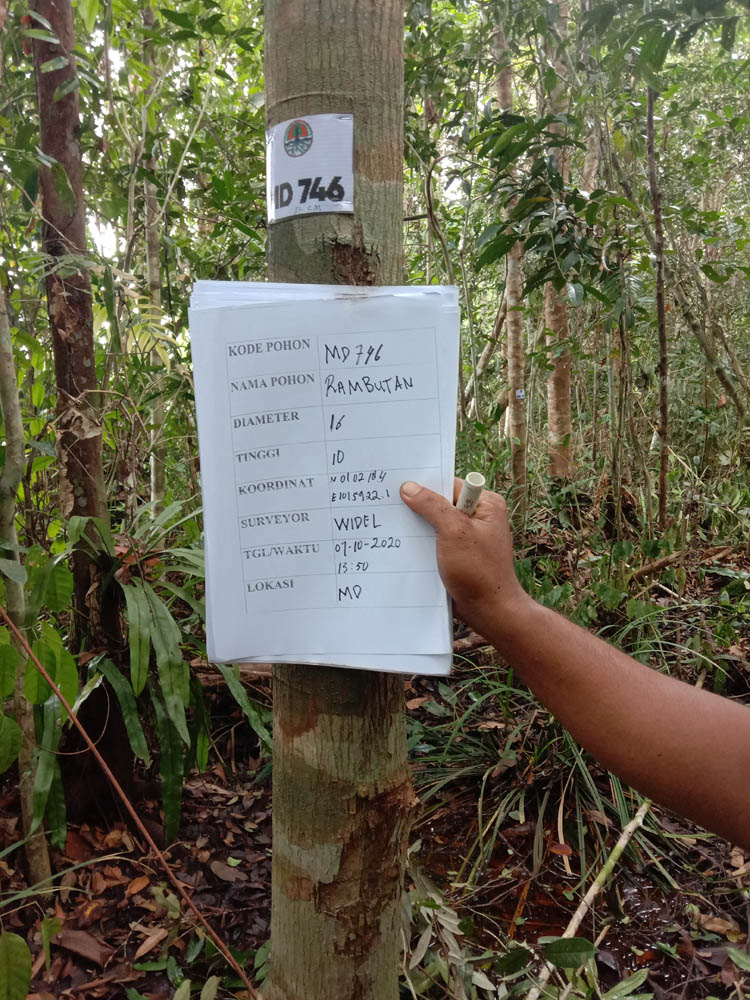 MD 746
15 CM
KODE POHON MD 746
NAMA POHON RAMBUTAN
DIAMETER 16
TINGGI 10
KOORDINAT N 01 02 18 4
E1015922.1
SURVEYOR WIDEL
TGL/WAKTU 07-10-2020
13:50
LOKASI MD